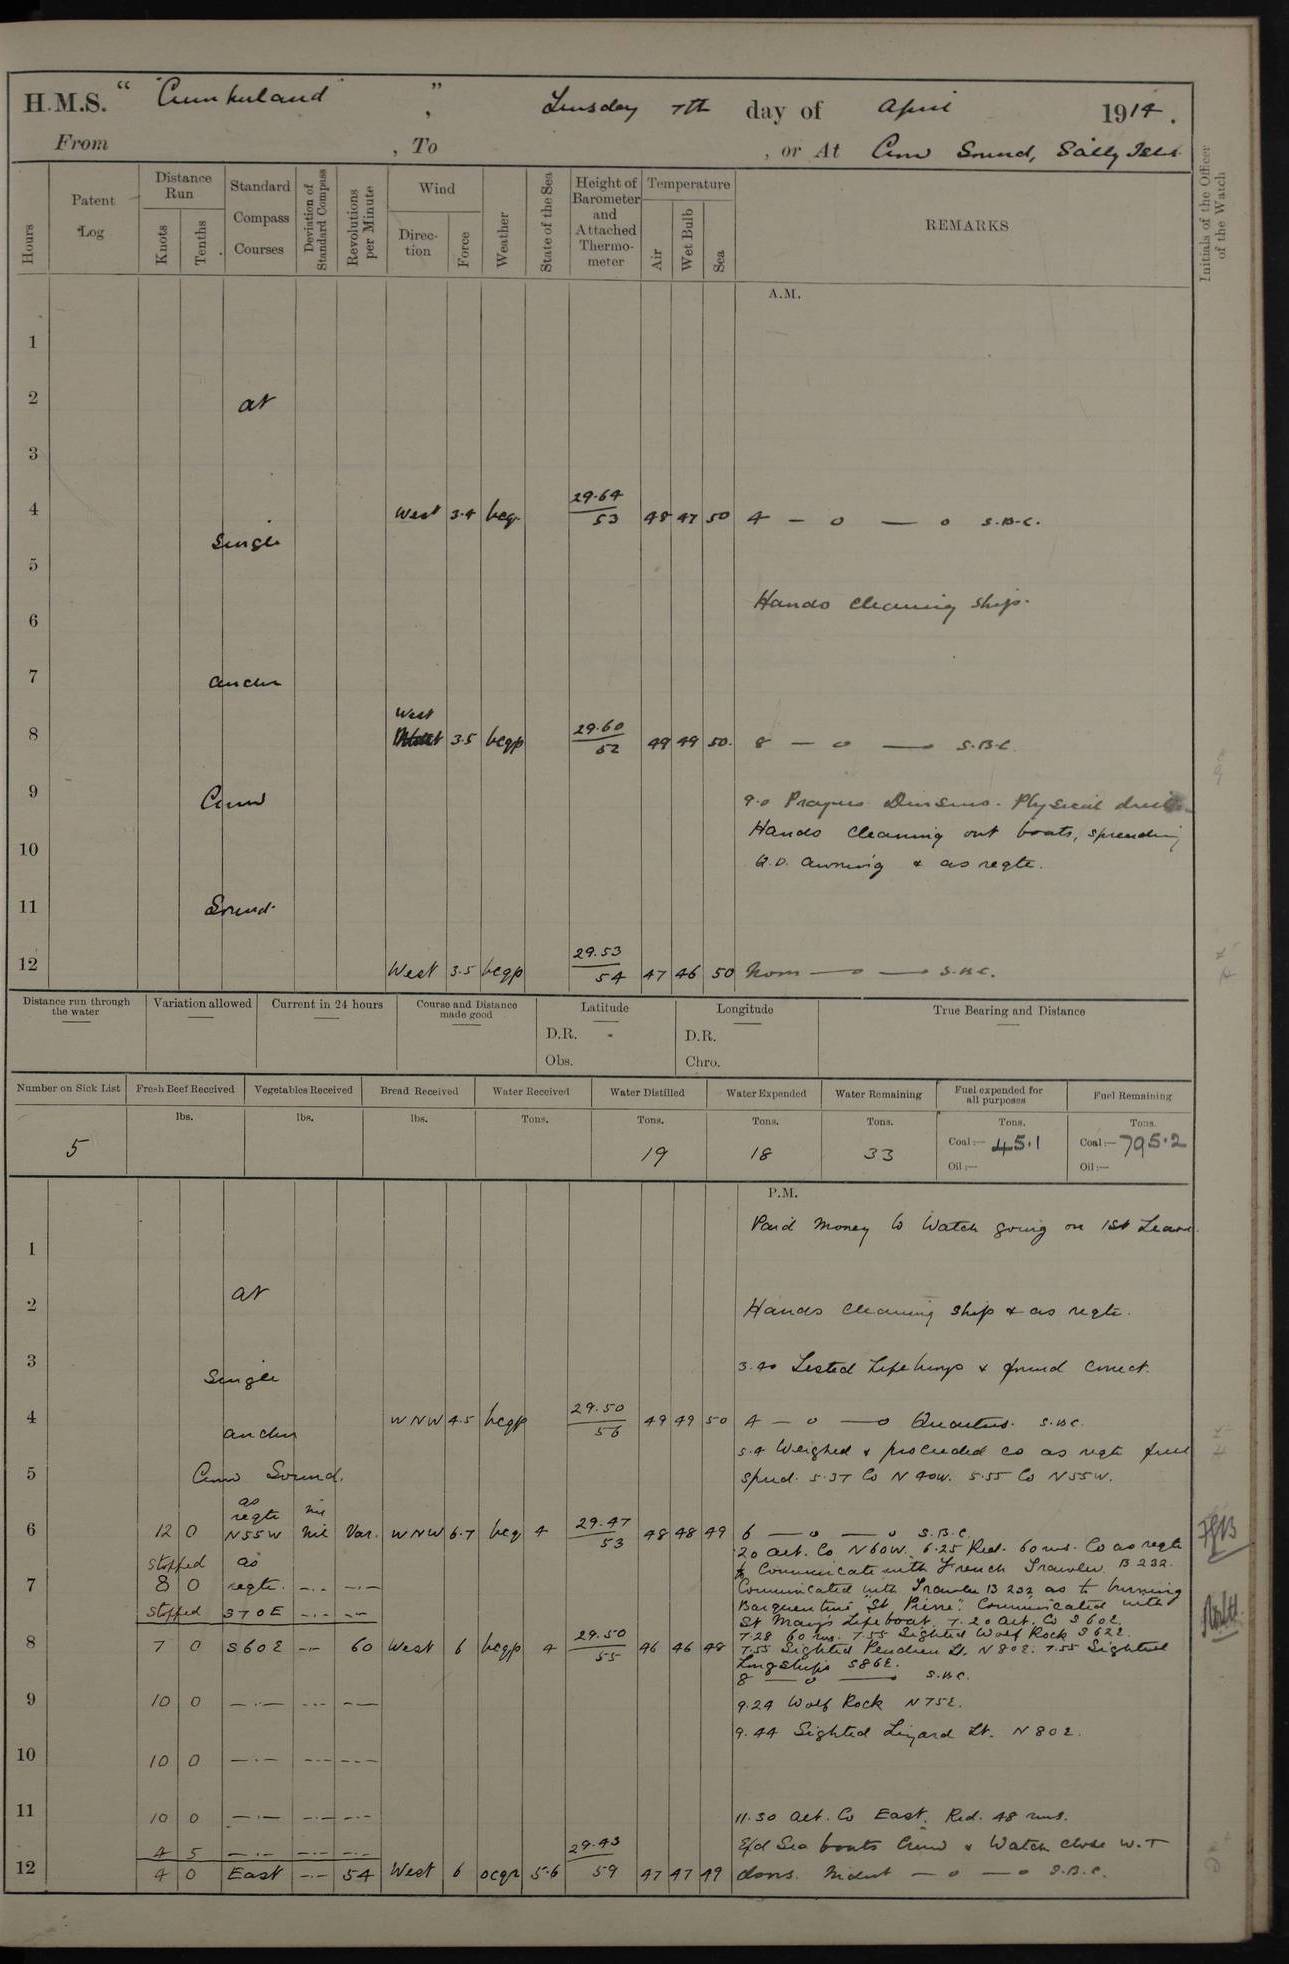 H.M.S. "Cumberland", Tuesday 7th day of April 1914.
From , To , or At Crow Sound, Scilly Isles
Hours
Patent Log
Distance Run
Knots
Tenths
Standard Compass Courses
Deviation of Standard Compass
Revolutions per Minute
Wind
Direction
Force
Weather
State of the Sea
Height of Barometer and Attached Thermometer
Temperature
Air
Wet Bulb
Sea
REMARKS
Initials of the Officer of the Watch
A.M.
1
2 at
3
4 West 3.4 bcq 29.64 53 48 47 50 4 — o — o S.B.C.
Single
5
Hands cleaning ship.
6
7 anchor
West
8 3.5 bcqp 29.60 52 49 49 50. 8 — o — S.B.C
9 Crow 9.0 Prayers Divisions. Physical drill
Hands cleaning out boats, spreading
10 Q.D. awning & as reqte.
11 Sound.
12 West 3.5 bcqp 29.53 54 47 46 50 Noon — o — S.B.C.
Distance run through the water
Variation allowed
Current in 24 hours
Course and Distance made good
Latitude
D.R.
Obs.
Longitude
D.R.
Chro.
True Bearing and Distance
Number on Sick List
Fresh Beef Received
Vegetables Received
Bread Received
Water Received
Water Distilled
Water Expended
Water Remaining
Fuel expended for all purposes
Fuel Remaining
lbs. lbs. lbs. Tons. Tons. Tons. Tons. Tons. Tons.
5 19 18 33 Coal:— 45.1 Coal:— 795.2
Oil:— Oil:—
P.M.
Paid Money to Watch going on 1st Leave.
1
at
2 Hands cleaning ship & as reqte.
3 3.40 Tested Lifebuoys & found correct.
Single
4 WNW 4.5 bcqp 29.50 56 49 49 50 4 — o — o Quarters. S.B.C.
anchor
5.4 Weighed & proceeded co as reqte
5 Crow Sound. speed. 5.37 Co N40W. 5.55 Co N55W.
as reqte nil
6 12 0 N55W nil Var. WNW 6.7 bcq 4 29.47 53 48 48 49 6 — o — o S.B.C.
20 alt. Co N60W. 6.25 Red. 60 revs. Co as reqte
stopped as to Communicate with French Trawler B 232.
7 8 0 reqte. Communicated with Trawler B 232 as to burning
Barquentine "St Pierre". Communicated with
stopped S70E St Mary's Lifeboat. 7.20 alt. Co S60E.
7.28 60 revs. 7.55 Sighted Wolf Rock S62E.
8 7 0 S60E 60 West 6 bcqp 4 29.50 55 46 46 48 7.55 Sighted Pendeen Lt. N80E. 7.55 Sighted
Longships S86E.
8 — o — S.B.C.
9 10 0 9.24 Wolf Rock N75E.
9.44 Sighted Lizard Lt. N80E.
10 10 0
11 10 0 11.30 alt. Co East. Red. 48 revs.
4 5 29.43 Exd Sea boats Crew & Watch close W.T
12 4 0 East 54 West 6 5.6 59 47 47 49 doors. Midnt — o — o S.B.C.